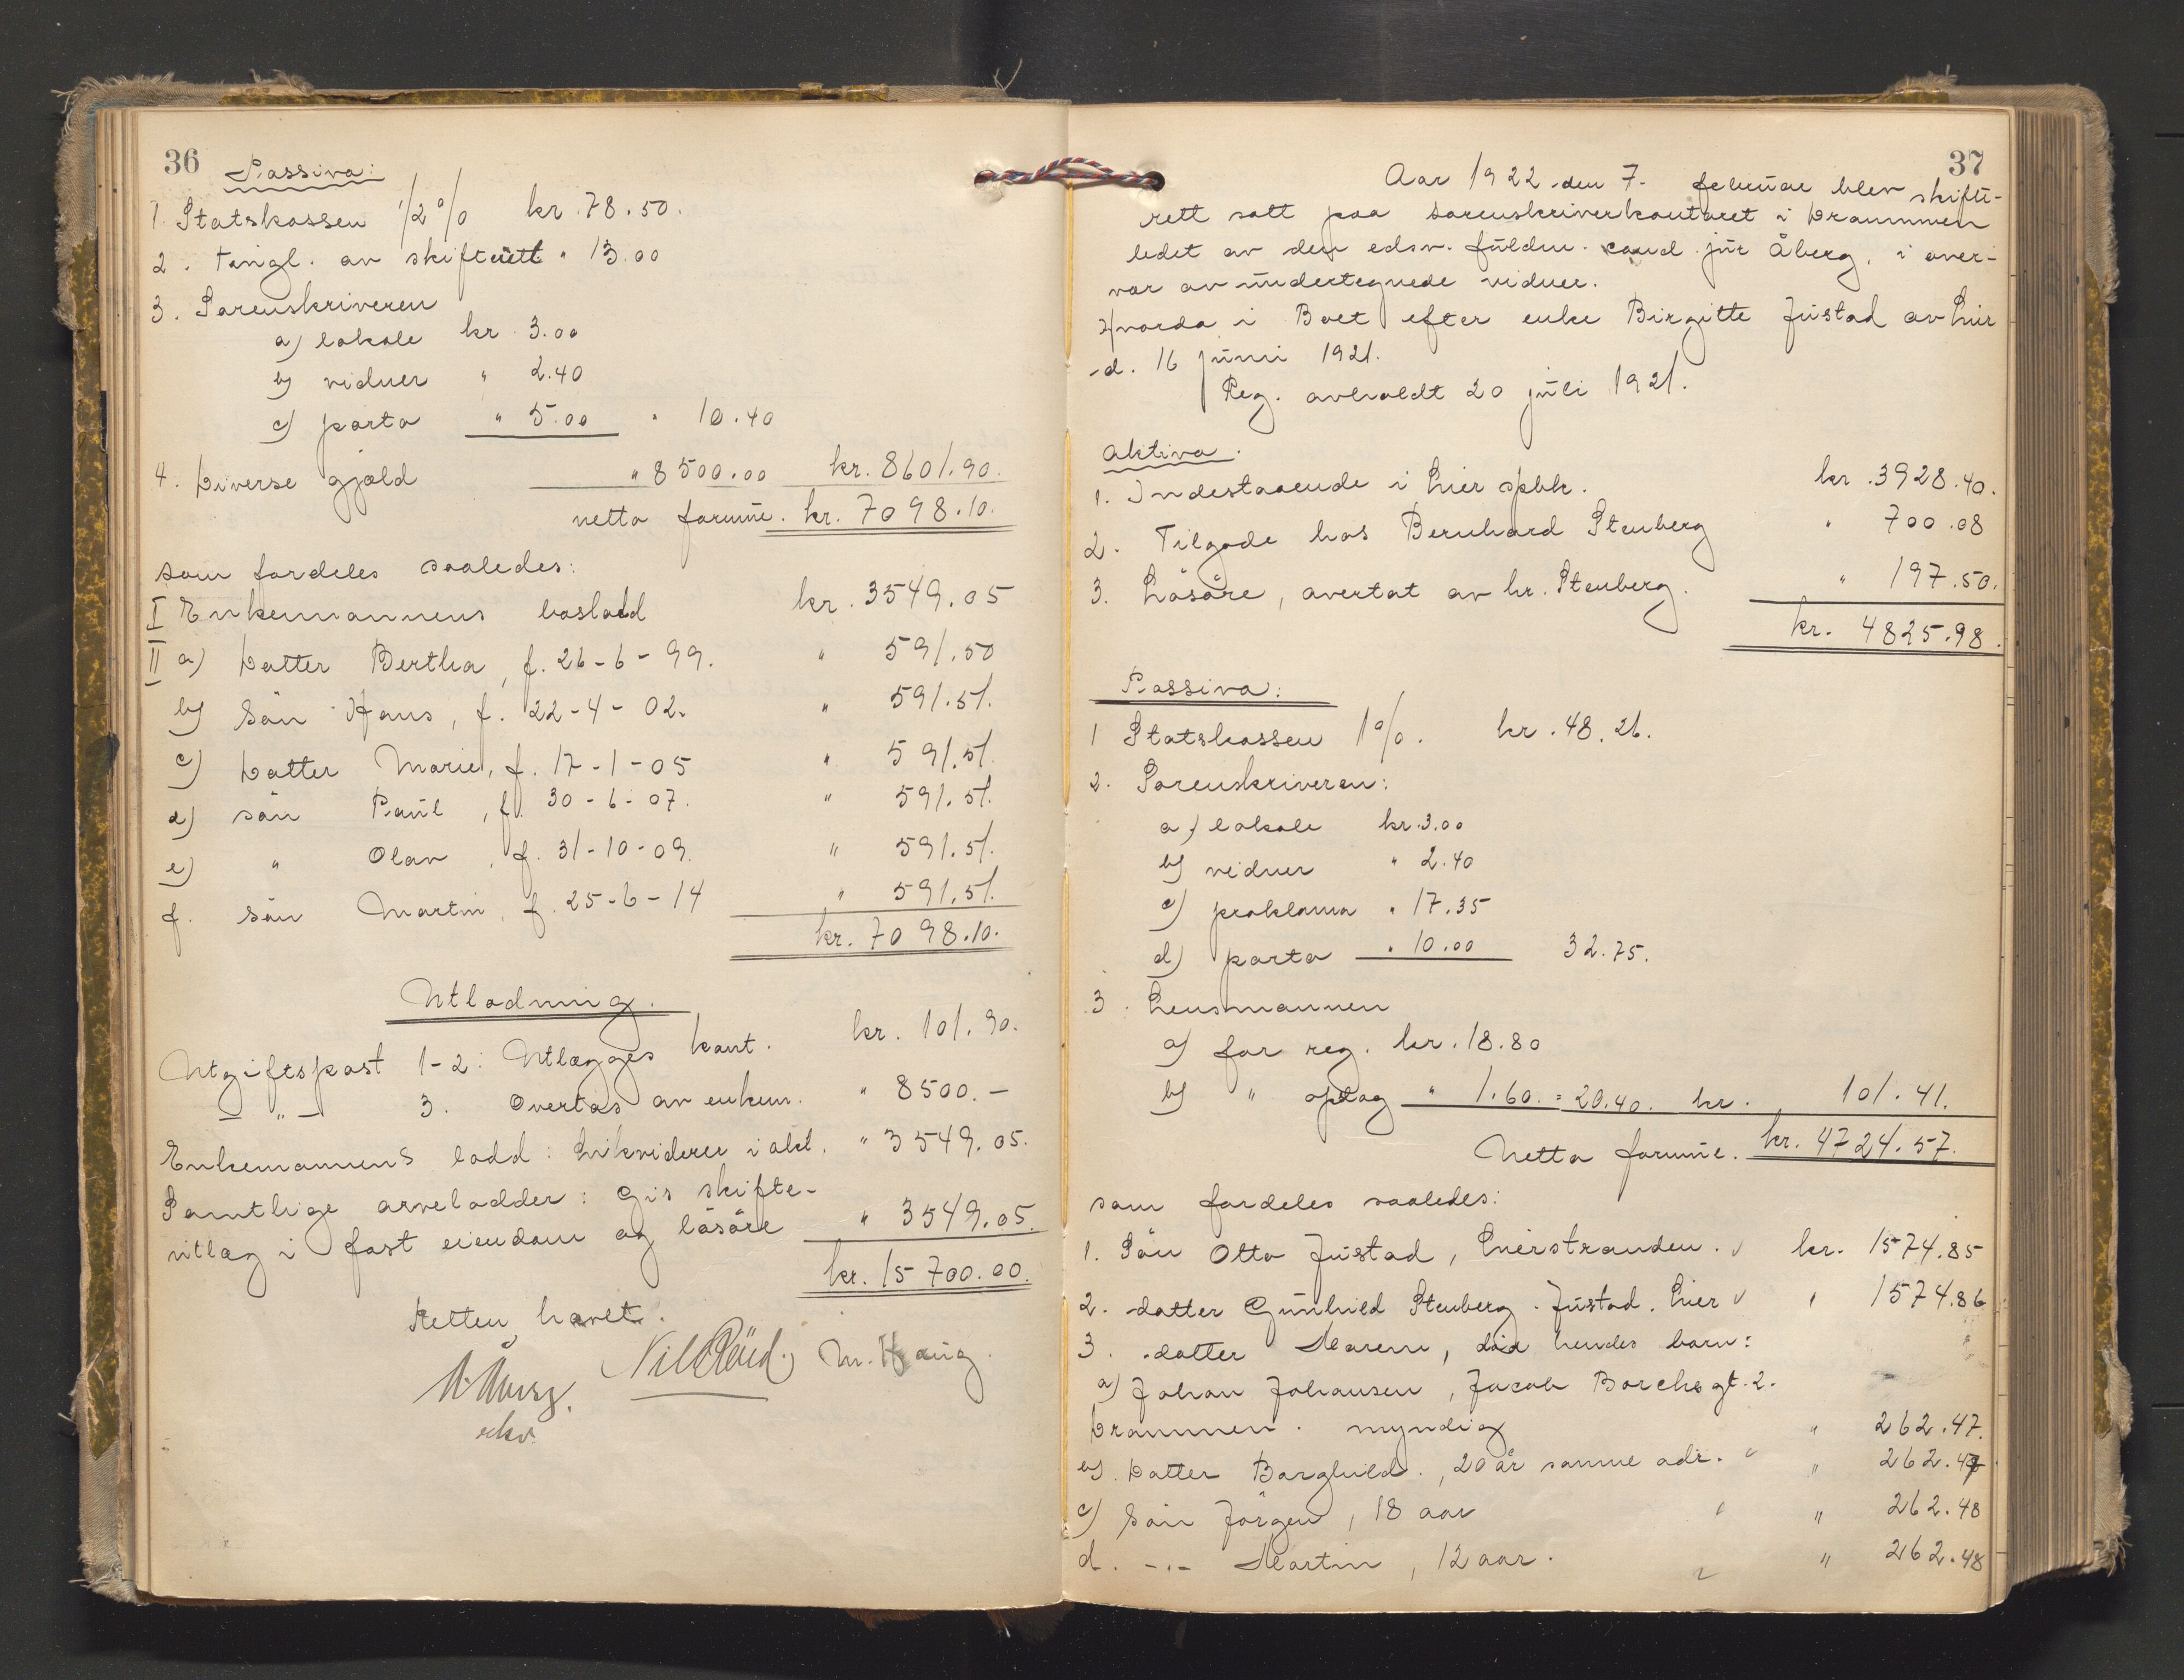 36
Passiva:
1. Statskassen 1/2 % kr. 78.50.
2. Tingl. av skifteutl " 13.00
3. Sorenskriveren
a) lokale kr. 3.00
b) vidner " 2.40
c) porto " 5.00 " 10.40
4. Diverse gjæld " 8500.00 kr. 8601.90.
netto formue. kr. 7098.10.
som fordeles saaledes:
I Enkemannens boslodd kr. 3549.05
II a) Datter Bertha, f. 26-6-99. " 591.50
b) Sön Hans, f. 22-4-02. " 591.51.
c) Datter Marie, f. 17-1-05 " 591.51.
d) sön Paul, f. 30-6-07. " 591.51.
e) " Olav, f. 31-10-09. " 591.51.
f. sön Martin, f. 25-6-14 " 591.51.
kr. 7098.10.
Utlodning.
Utgiftspost 1-2: Utlægges kont. kr. 101.90.
— " — 3. Overtas av enkem. " 8500.-
Enkemannens lodd: Likviderer i akt. " 3549.05.
Samtlige arvelodder: Gis skifte-
utlæg i fast eiendom og løsöre " 3549.05.
kr. 15700.00.
Retten hævet.
M. Haug
37
Aar 1922 den 7. februar blev skifte-
rett satt paa sorenskriverkontoret i Drammen
ledet av den edsv. fuldm. cand. jur Åberg, i over-
vær av undertegnede vidner.
Hvorda i Boet efter enke Birgitte Justad av Lier
d. 16 juni 1921.
Reg. avholdt 20 juli 1921.
Aktiva.
1. Indestaaende i Lier spbk. kr. 3928.40.
2. Tilgode hos Bernhard Stenberg " 700.08
3. Løsöre, overtat av hr. Stenberg. " 197.50.
kr. 4825.98.
Passiva:
1 Statskassen 1%. kr. 48.26.
2. Sorenskriveren:
a) lokale kr. 3.00
b) vidner " 2.40
c) proklama " 17.35
d) porto " 10.00 32.75.
3. Lensmannen
a) for reg. kr. 18.80
b) " optag " 1.60. = 20.40. kr. 101.41.
Netto formue. kr. 4724.57.
som fordeles saaledes:
1. Sön Otto Justad, Lierstranden. kr. 1574.85
2. datter Gunhild Stenberg. Justad. Lier " 1574.86
3. datter Maren, död hendes barn:
a) Johan Johansen, Jacob Borchsgt. 2.
Drammen. myndig " 262.47.
b). Datter Borghild., 20 år samme adr. " 262.47
c) Sön Jörgen, 18 aar " 262.48
d. -"- Martin, 12 aar. " 262.48